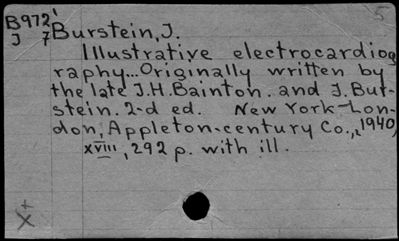 5
B972
J 7
Burstein, J.
Illustrative electrocardiog
raphy...Originally written by
the late J.H.Bainton. and J.Bur-
stein. 2-d ed. New York-Lon-
don, Appleton-century Co., 1940,
XVIII, 292 p. with ill.
X